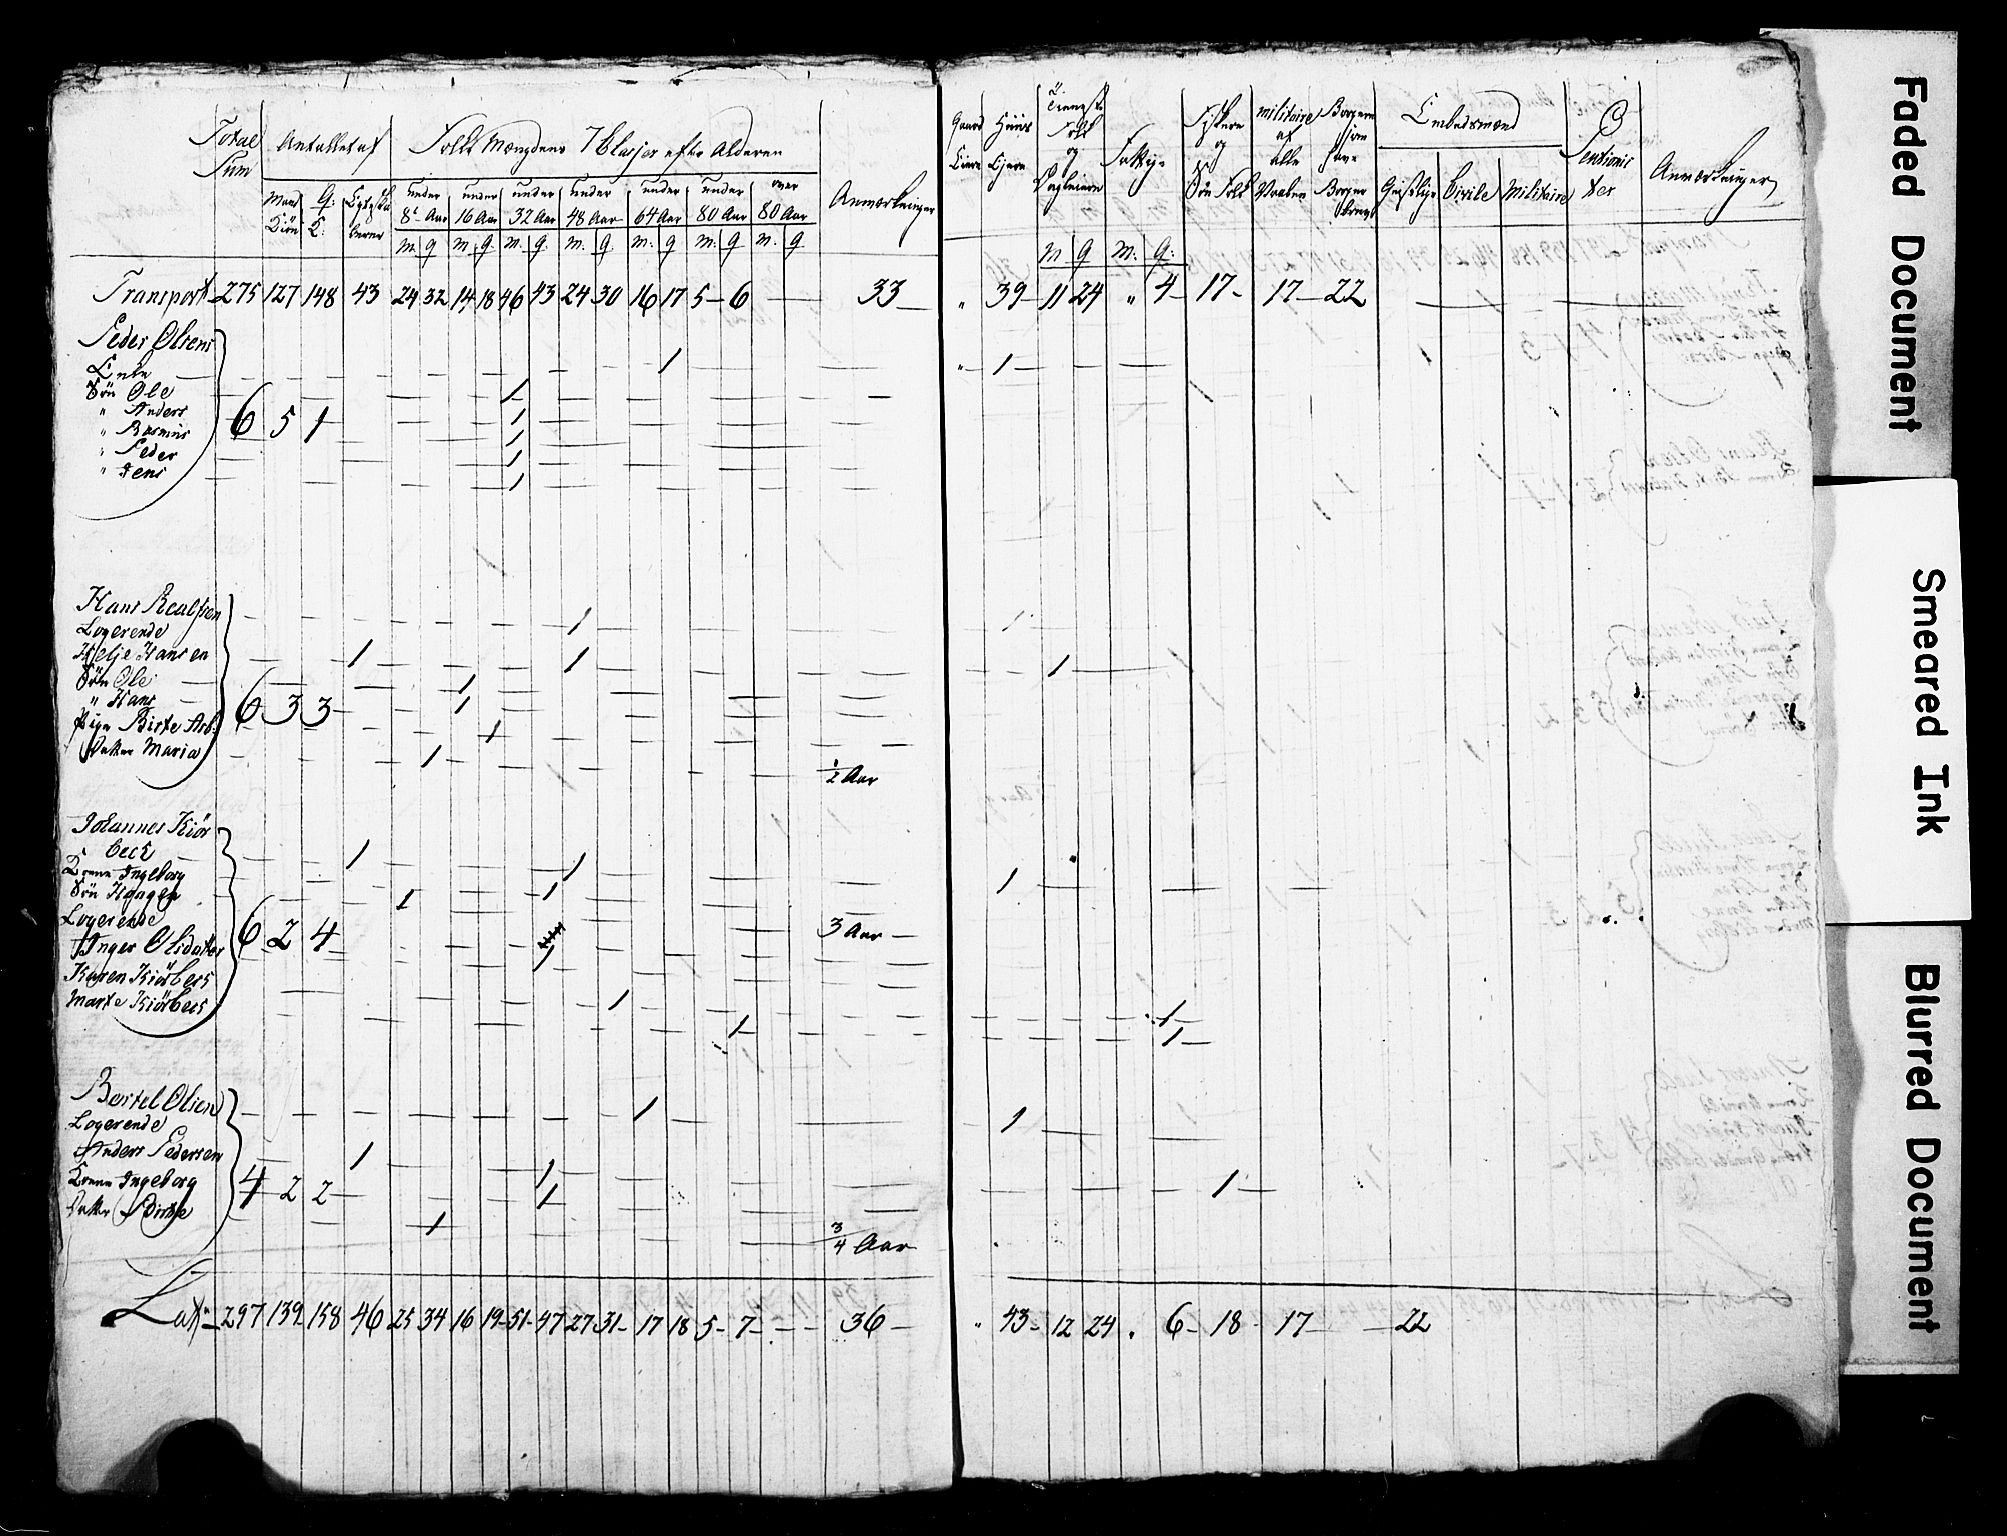 Total Sum
Antallet af
Folke Mængdens 7 Classer efter Alderen
Anmærkninger
Mand Kiøn
Q: K:
under 8te Aar
under 16 Aar
under 32 Aar
under 48 Aar
under 64 Aar
under 80 Aar
over 80 Aar
M. Q M Q. M. Q. M. Q. M. Q M. Q M. Q
Transport 275 127 148 43 24 32 14 18 46 43 24 30 16 17 5 6 — — 33
Peder Olsens
Enke — 1
Søn Ole 1
" Anders 6 5 1 1
" Rasmus 1
" Peder 1
" Jens 1
Hans 1
Logerende
Helje Hansen 1 1
Søn Ole 1
" Hans 6 3 3 1
Pige Birte 1
Datter Maria 1 ½ Aar
Johannes Kiør
beck 1 1
Kone Ingeborg 1
Søn Haagen 1 3 Aar
Logerende 6 2 4
Inger Olsdatter 1
Karen Kiørbeck 1
Marte Kiørbeck 1
Bertel Olsen 1
Logerende
Anders Pedersen 1 1
Kone Ingeborg 4 2 2 1
Datter 1 ¾ Aar
Lat: 297 139 158 46 25 34 16 19 51 47 27 31 17 18 5 7 — — 36
Gaard Eiere
Huus Eiere
Tieneste Folk og Dagleiere
Fattige
Fiskere og Søe Folk
Militaire af alle Vaaben
Borgere som have Borger
Embedsmænd
Geistlige
Civile
Militaire
Pentionister
Anmærkninger
M Q M: Q:
" 39 11 24 " 4 17 17 22
" 1
1
1
1
1
1
1
" 43 12 24 " 6 18 17 22
Faded Document
Smeared Ink
Blurred Document